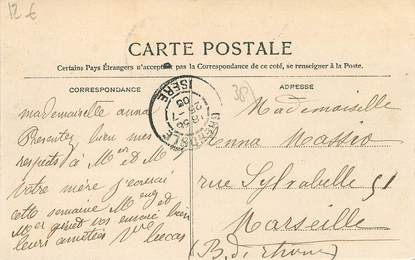 12 €
CARTE POSTALE
Certains Pays Étrangers n'acceptent pas la Correspondance de ce coté, se renseigner à la Poste.
CORRESPONDANCE
ADRESSE
38
GRENOBLE
ISÈRE
mademoiselle anna
Presentez bien mes
respects à Mr et M
Votre mère j'ecrirai
cette semaine M et
Mer vos envoie bien
leurs amitiés Vve Lucas
Mademoiselle
Anna Massio
rue Sylvabelle 51
Marseille
(B. d. Rhône)